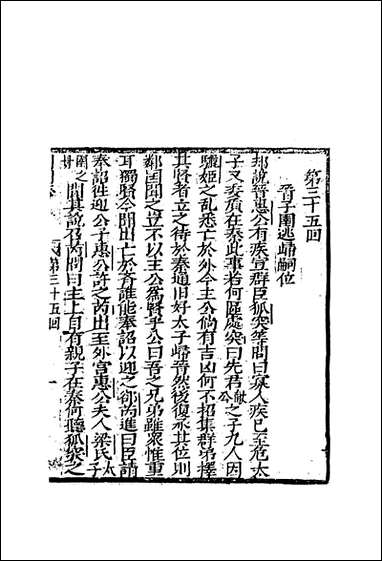 第三十五回
晋子圉逃歸嗣位
却說晉惠公有疾宣群臣狐突等問曰寡人疾已至危太
子又委質在秦此事若何區處突曰先君獻公之子九人因
驪姬之乱悉亡於外今主公倘有吉凶何不招集群弟擇
其賢者立之待於秦通旧好太子歸晉然後復承其位則
鄰国聞之豈不以主公為賢乎公曰吾之兄弟雖衆惟重
耳獨賢今聞出亡於齊誰能奉詔以迎之郤芮進曰臣請
奉詔徃迎公子惠公許之芮出至外宫惠公夫人梁氏太子
圉之母聞其說召芮問曰主上自有親子在秦何聽狐突之
第三十五回
一